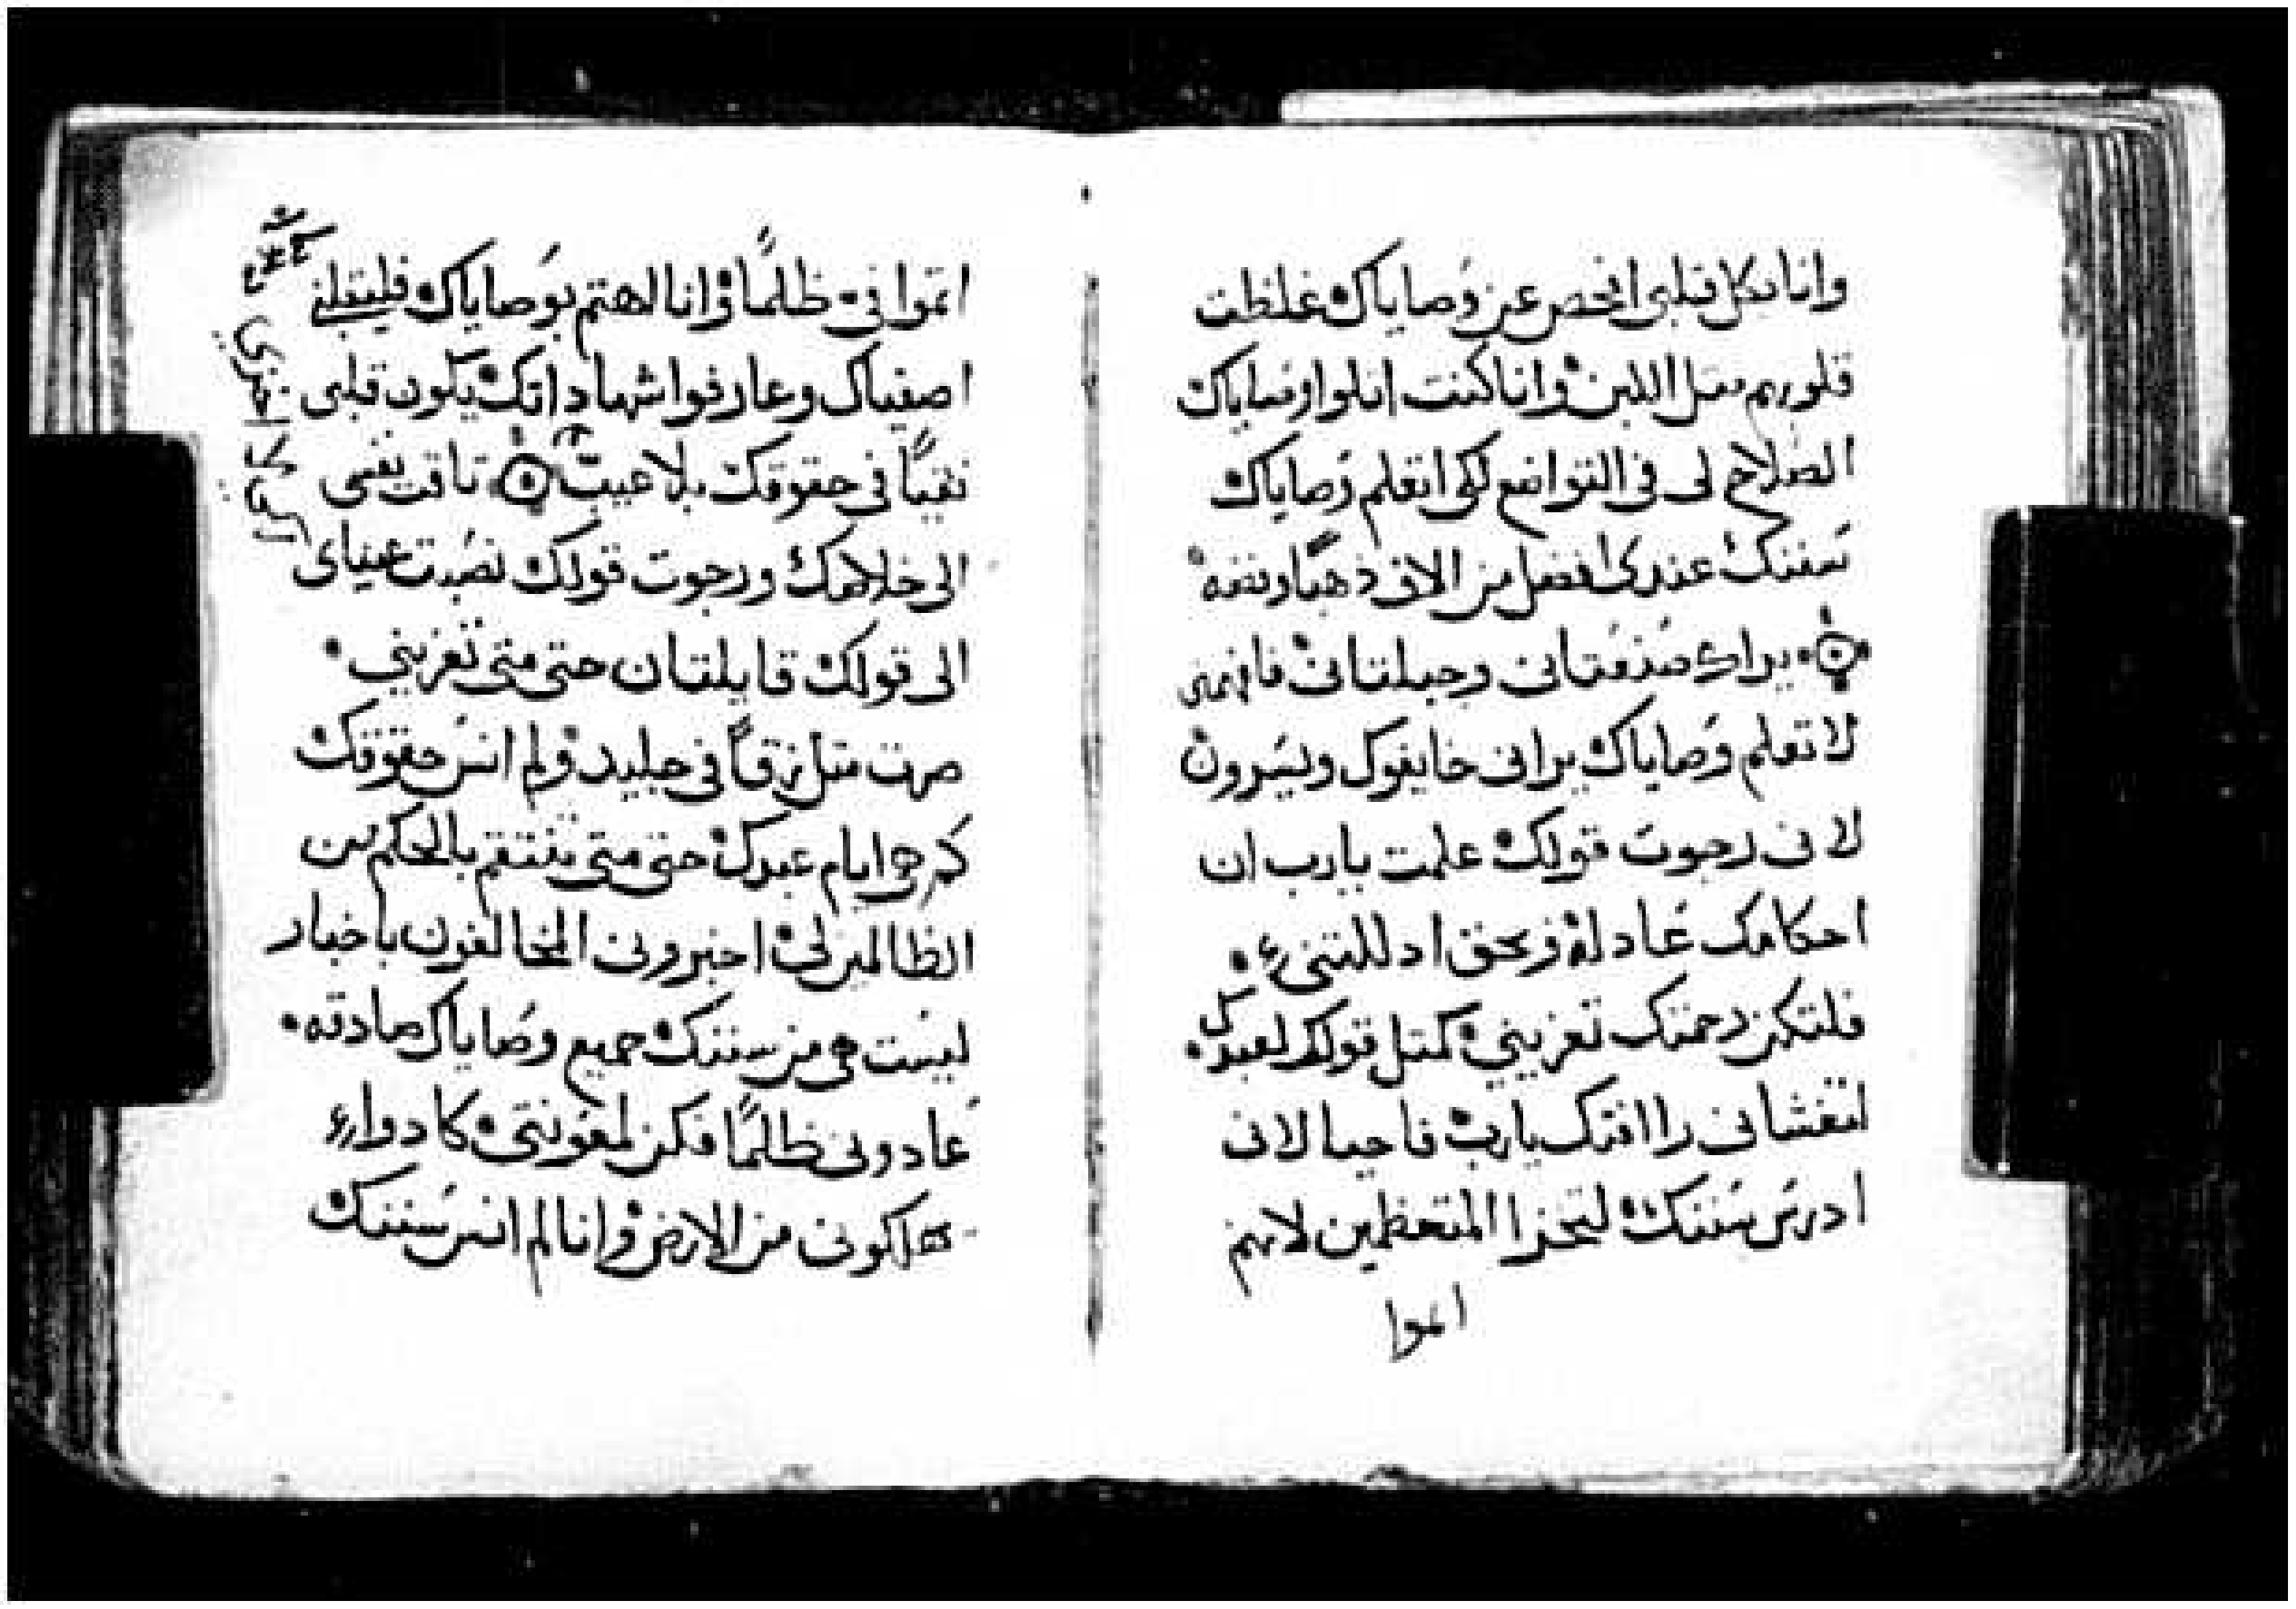 وانا بكل قلبي افحص عن وصاياك غلظت
قلوبهم مثل اللبن وانا كنت اتلوا وصاياك
الصلاح لي في التواضع لكي اتعلم وصاياك
سننك عندي افضل من الاف ذهبًا وفضه
يداك صنعتاني وجبلتاني فافهمني
لاتعلم وصاياك يراني خايفوك ويسرون
لاني رجوت قولك علمت يارب ان
احكامك عادله وبحق اذللتني
فلتكن رحمتك تعزيني كمثل قولك لعبدك
لتغشاني راافتك يارب فاحيا لاني
ادرس سننك ليخزا المتعظمين لانهم
اثموا
اثموا في ظلمًا وانا اهتم بوصاياك فليقبلني
اصفياك وعارفوا شهاداتك يكون قلبي
نقيًا في حقوقك بلا عيب تاقت نفسي
الى خلاصك ورجوت قولك نصبت عيناي
الى قولك قايلتان حتى متى تعزيني
صرت مثل زقًا في جليد ولم انس حقوقك
كم هي ايام عبدك حتى متى تنتقم بالحكم من
الظالمين لي اخبروني المخالفون باخبار
ليست هي من سننك جميع وصاياك صادقه
عادوني ظلمًا فكن لمعونتي كادوا
اكوني من الارض وانا لم انس سننك
لكي لا اخزي